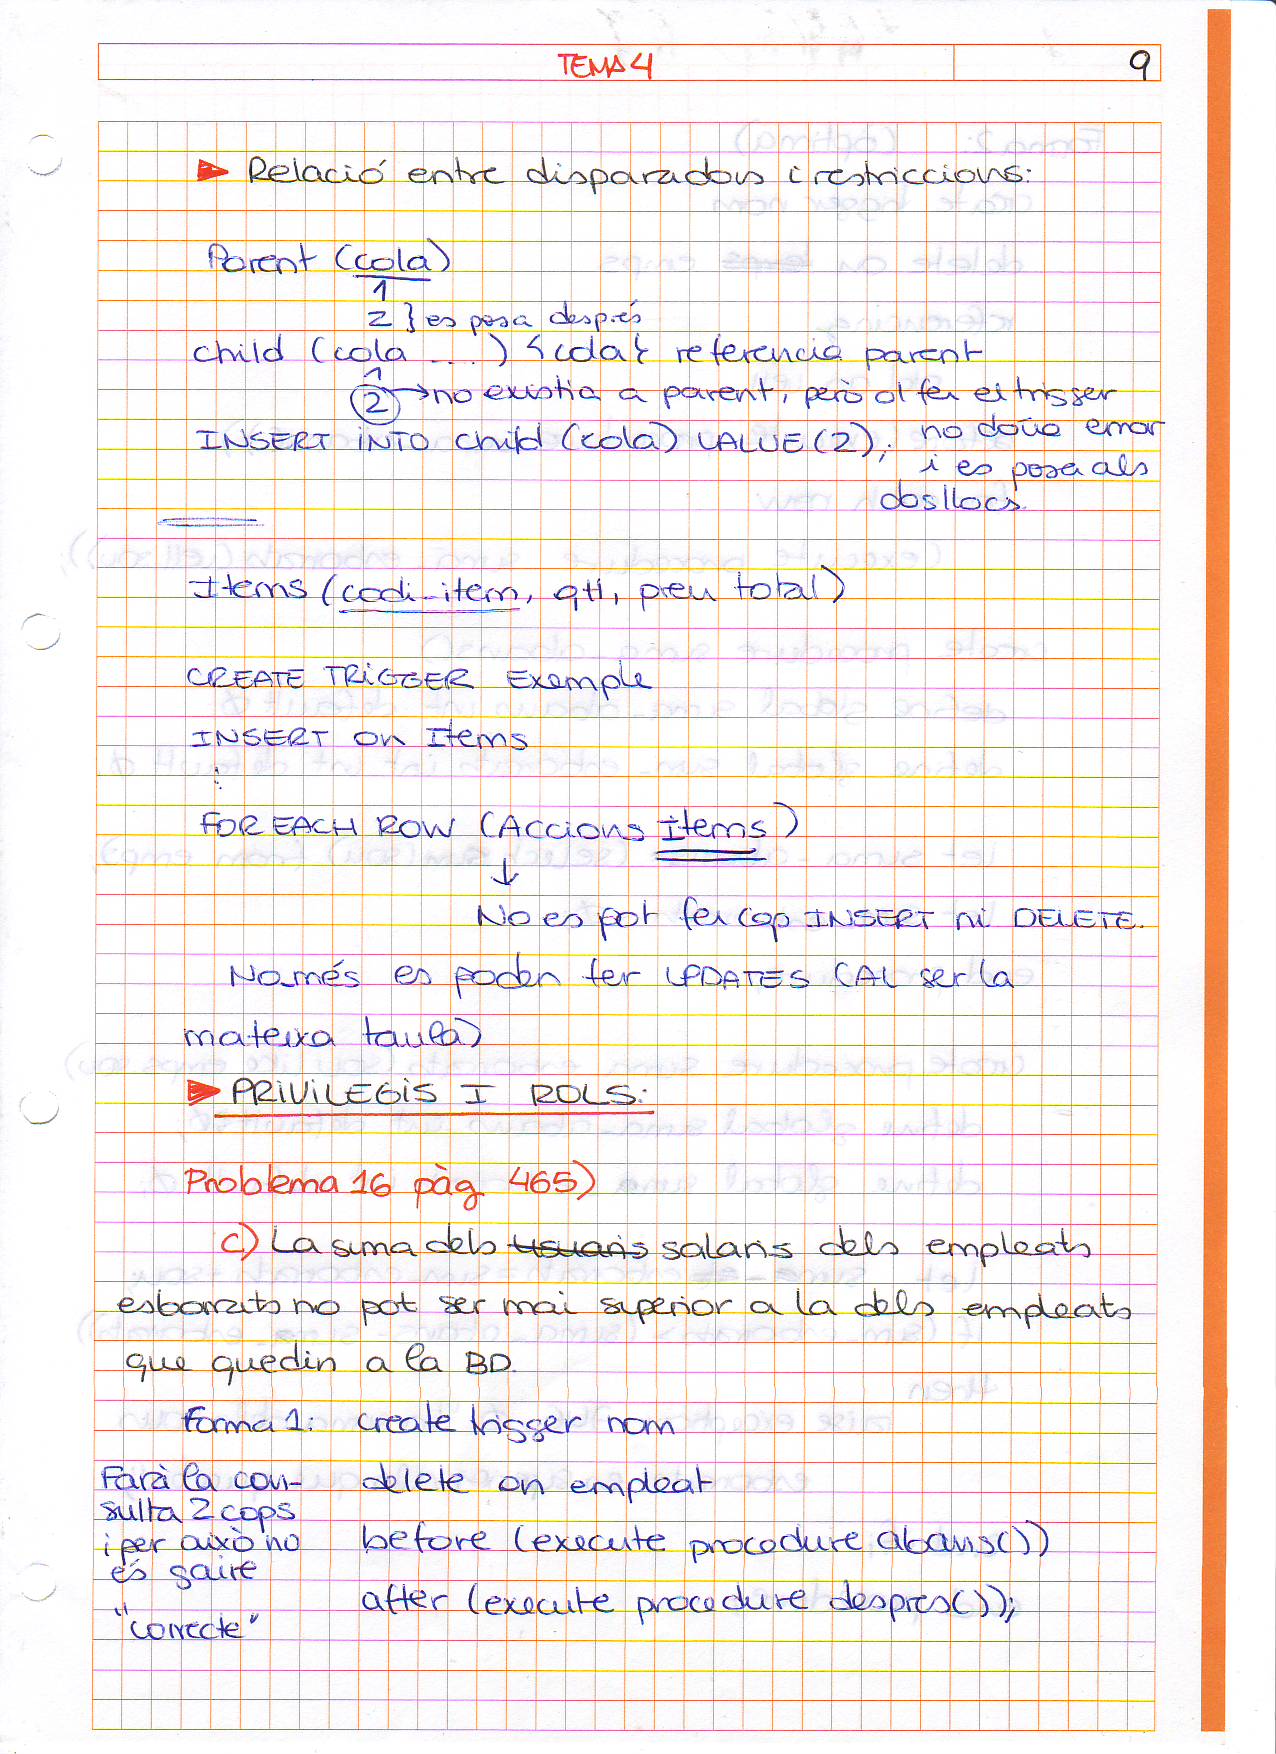 TEMA 4 9
► Relació entre disparadors i restriccions:
Parent (cola)
1
2 } es posa després
child (cola ....) {cola} referencia parent
1
2 → no existia a parent, però al fer el trigger
INSERT INTO child (cola) VALUE (2); no dóna error
i es posa als
dos llocs.
Items (codi-item, qtt, preu total)
CREATE TRIGGER Exemple
INSERT on Items
⋮
FOR EACH ROW (Accions Items)
↓
No es pot fer cap INSERT ni DELETE.
Només es poden fer UPDATES (AL ser la
mateixa taula)
► PRIVILEGIS I ROLS:
Problema 16 pàg 465)
c) La suma dels usuaris salaris dels empleats
esborrats no pot ser mai superior a la dels empleats
que quedin a la BD.
Forma 1: create trigger nom
Farà la con- delete on empleat
sulta 2 cops
i per això no before (execute procedure abans())
és gaire
"correcte" after (execute procedure despres());